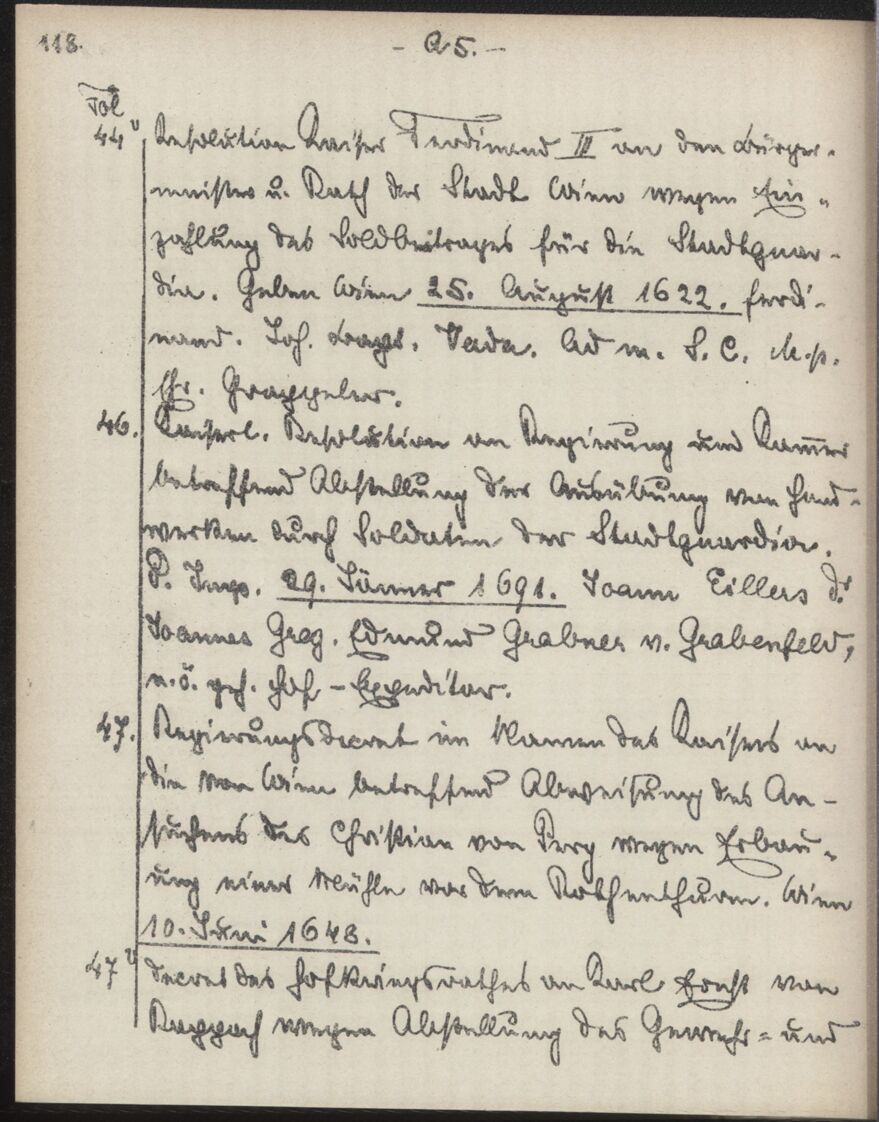 118.
- A 5. -
Fol
44v Resolution Kaiser Ferdinand III an den Bürger-
meister u. Rath der Stadt Wien wegen Ein-
zahlung des Soldbeitrages für die Stadtguar-
dia. Geben Wien 25. August 1622. Ferdi-
nand. Joh. Bapt. Verda. Ad m. S. C. M. p.
Chr.
46. Kaiserl. Resolution an Regierung und Kammer
betreffend Abstellung der Ausübung von Hand-
werken durch Soldaten der Stadtguardia.
P. Imp. 29. Jänner 1691. Joann Eillers Dr
Joannes Greg. Edmund Grabner v. Grabenfeld,
n. ö. geh. Hof-Expeditor.
47. Regierungsdecret im Namen des Kaisers an
die von Wien betreffend Abweisung des An-
suchens des Christian von Perg wegen Erbau-
ung einer Mühle vor dem Rothenthurm. Wien
10. Juni 1648.
47v Decret des Hofkriegsrathes an Karl Ernst von
Rappach wegen Abstellung des Gewehr- und